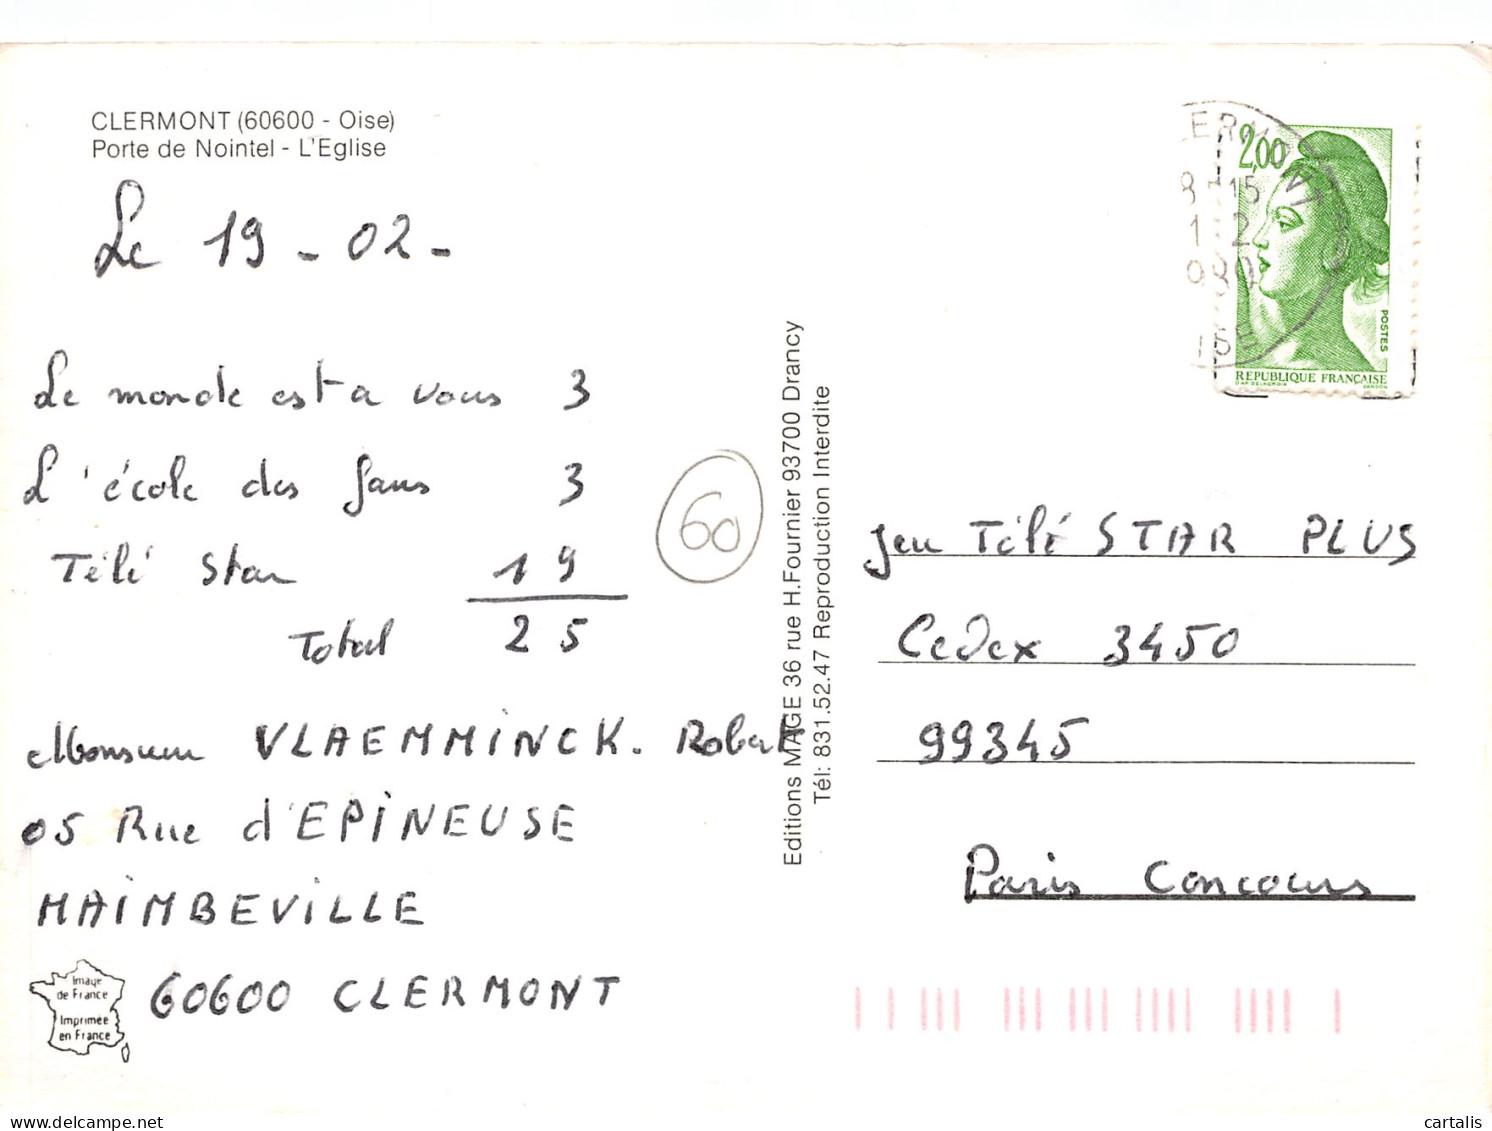 CLERMONT (60600 - Oise)
Porte de Nointel - L'Eglise
Le 19 - 02 -
Le monde est a vous 3
L'école des fans 3
Télé Star 19
Total 25
Monsieur VLAEMMINCK. Robert
05 Rue d'EPINEUSE
MAIMBEVILLE
60600 CLERMONT
Image
de France
Imprimée
en France
60
Editions MAGE 36 rue H.Fournier 93700 Drancy
Tél: 831.52.47 Reproduction Interdite
2,00
POSTES
REPUBLIQUE FRANÇAISE
Jeu Télé STAR PLUS
Cedex 3450
99345
Paris Concours
cartalis